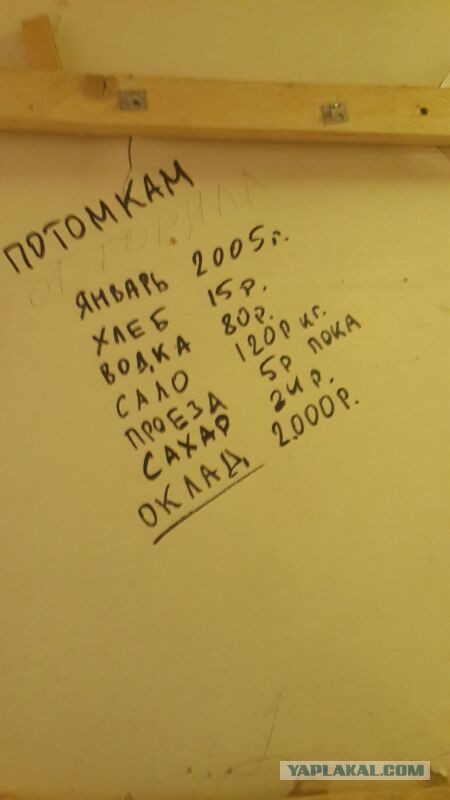 ПОТОМКАМ
ОТ ГОРИЛЛ
ЯНВАРЬ 2005г.
ХЛЕБ 15р.
ВОДКА 80р.
САЛО 120р кг.
ПРОЕЗД 5р ПОКА
САХАР 24р.
ОКЛАД 2.000р.
YAPLAKAL.COM